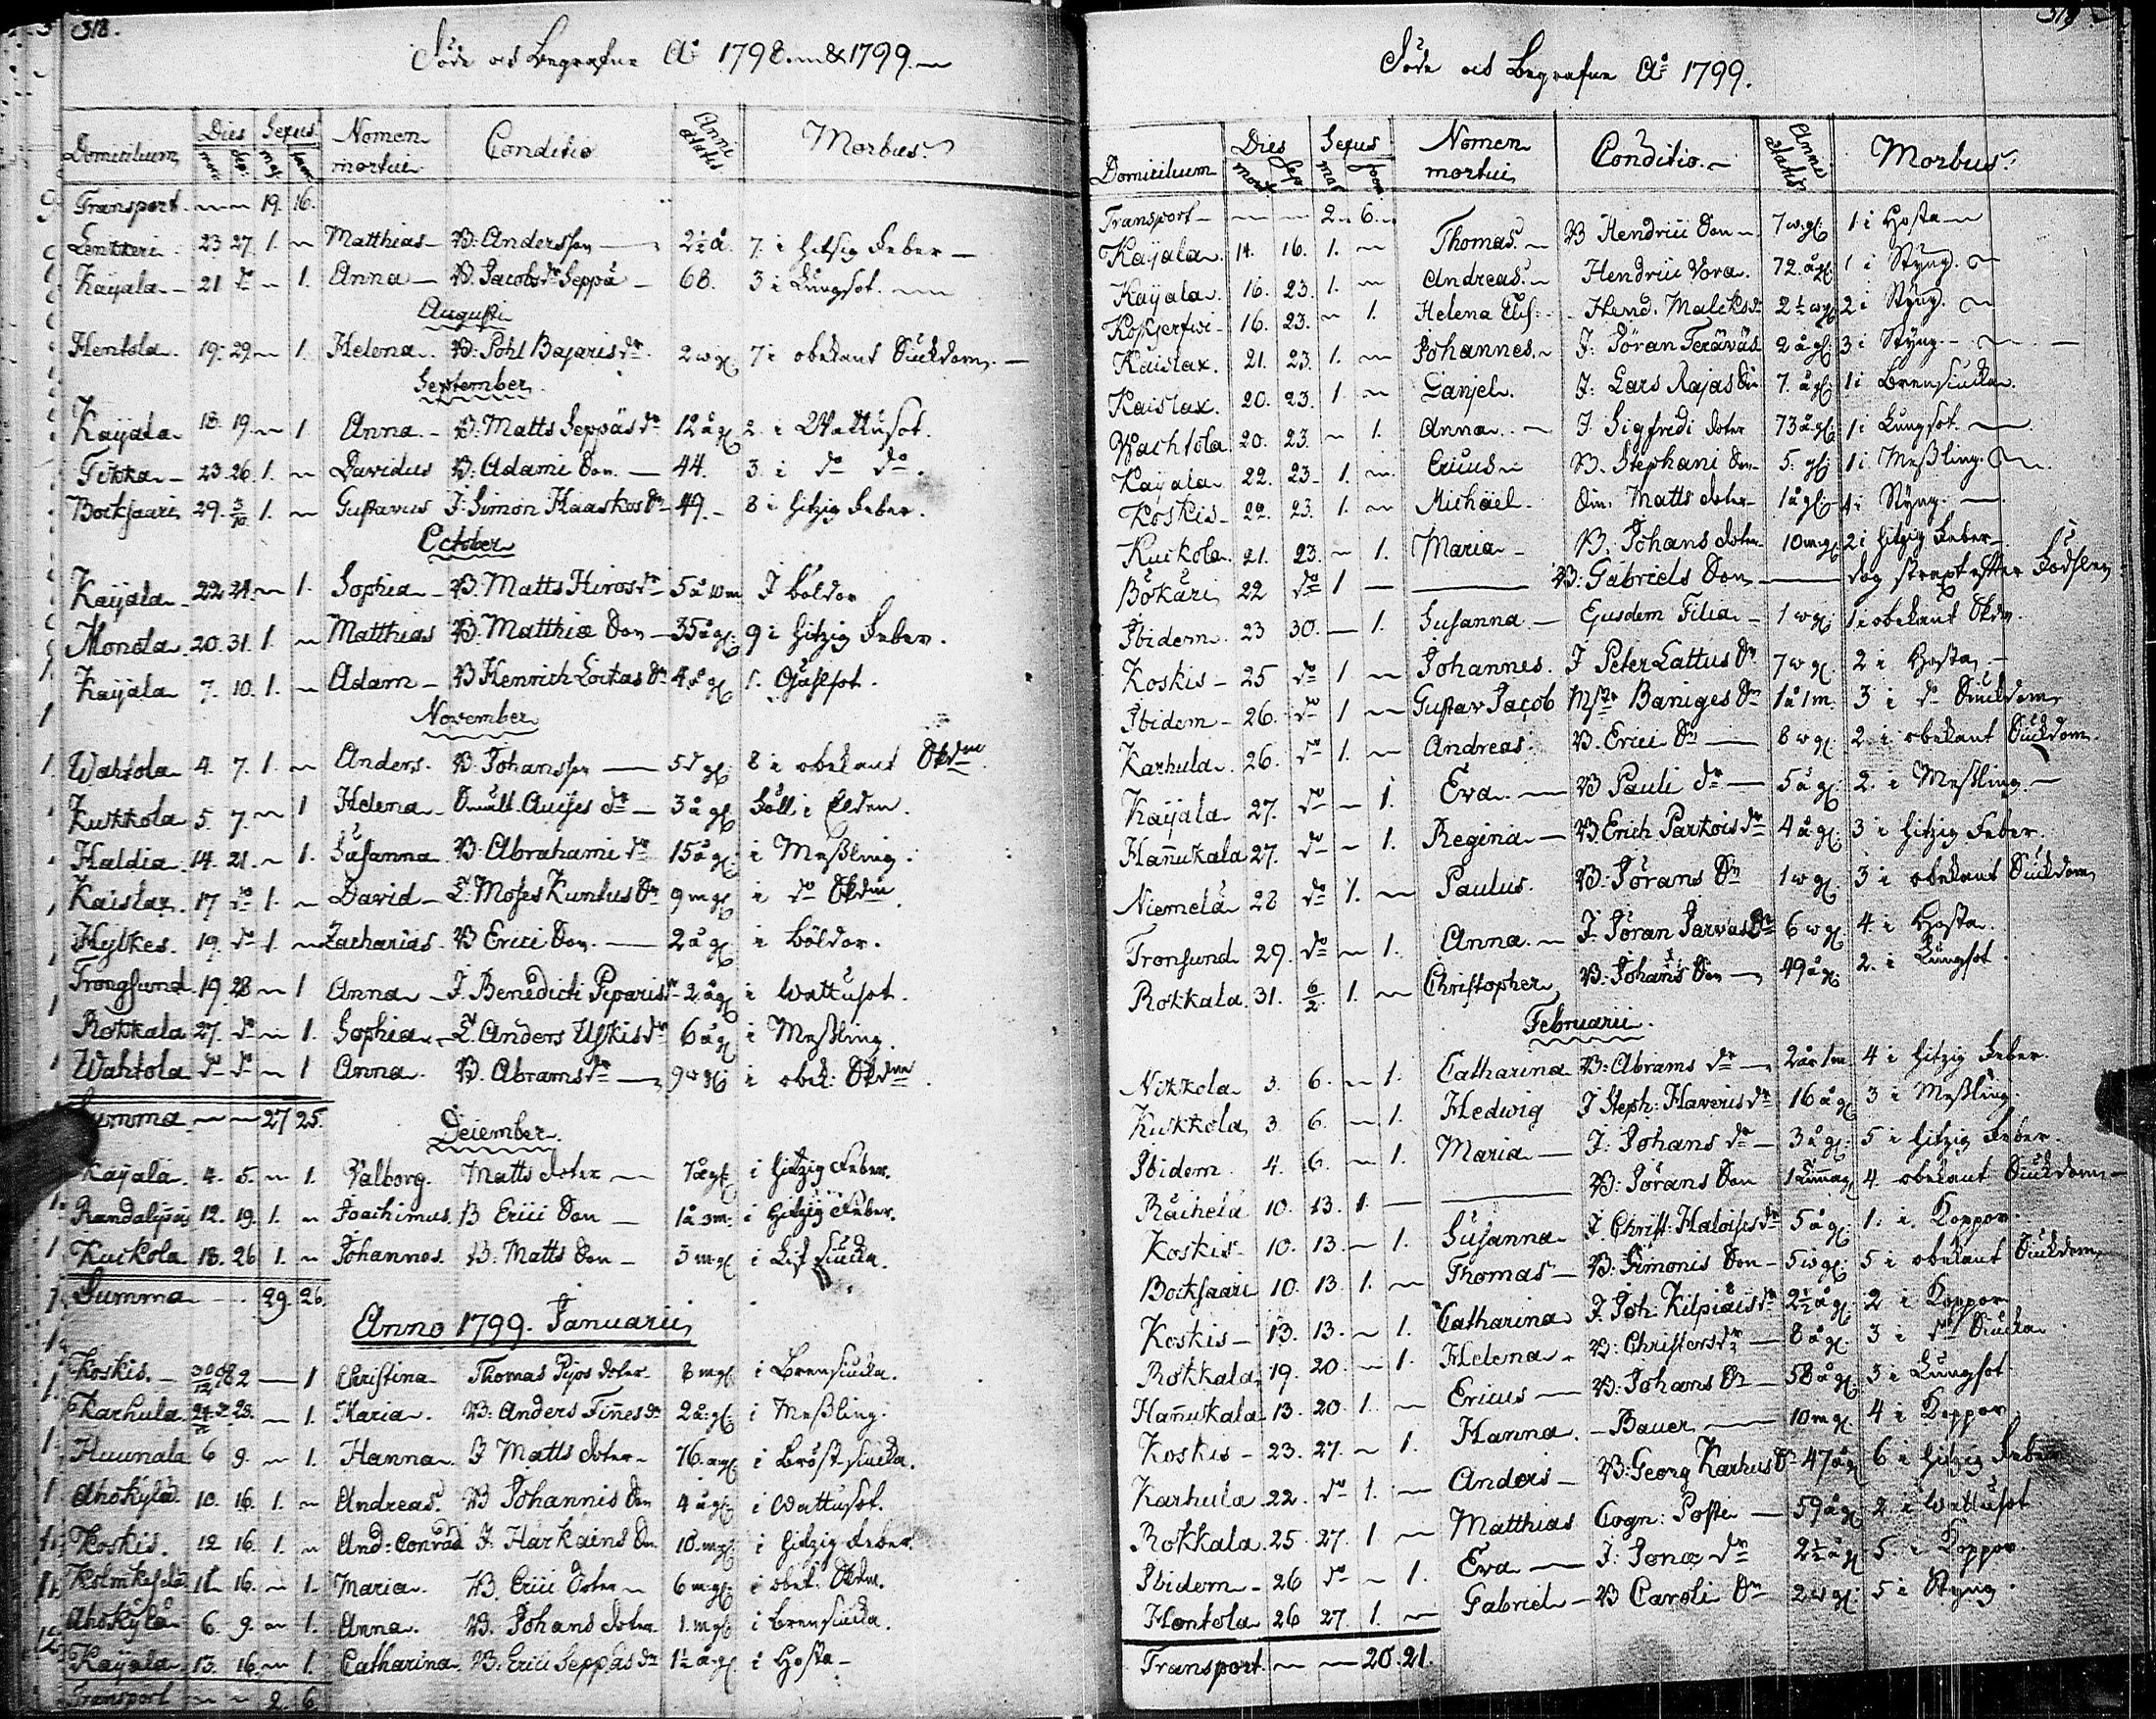 318.
Döde och Begrafne Aº 1798. & 1799.
Domicilium Dies mor: Sep: Sexus mas: foem: Nomen mortui Conditio Anni ætatis Morbus.
Transport 19. 16.
Lenkkeri 23 27. 1. Matthias B: Andersson 2½ å. 7. i hitsig Feber
Kayala 21 do 1. Anna B. Jacobs dr Seppä 68. 3 i Lungsot.
Augusti
Hentola. 19. 29. 1. Helena. B: Pohl Bajaris dr 2 w gl. 7 i obekant Siukdom.
September
Kayala 18. 19. 1 Anna B: Matts Seppäs dr 12 å gl. 2. i Wattusot.
Tikka 23 26. 1. Davidus B: Adami Son. 44. 3. i do do.
Bocksaari 29. 3/10. 1. Gustavus I: Simon Haaskos Sn 49. 8 i hitzig Feber.
October
Kayala 22 24. 1. Sophia B. Matts Hiros dr 5 å 10 m I boldor
Monola 20. 31. 1. Matthias B. Matthiæ Son 35 å gl. 9 i hitzig Feber.
Kayala 7. 10. 1. Adam B Henrich Lockas Sn 4 gl.
November
Wahtola 4. 7. 1. Anders. B Johansson 5 d gl. 8 i obekant Skdm.
Kukkola 5. 7. 1 Helena dr 3 å gl. i Elden.
Haldia 14. 21. 1. Susanna B: Abrahami dr 15 å gl. i Meßling.
Kaislax. 17 do 1. David L: Moses Kuntus Sn 9 m gl. i do Skdm.
Hylkes. 19. do 1. Zacharias. B Erici Son. 2 å gl. i boldor.
Trongsund. 19. 28 1 Anna I. Benedicti Piparis dr 2. å gl. i Wattusot.
Rokkala 27. do 1. Sophia L. Anders Uskis dr 6 å gl. i Meßling.
Wahtola do do 1 Anna. B. Abrams dr 9 w gl. i obek: Skdm.
Summa 27 25.
December.
Kayala. 4. 5. 1. Valborg. Matts doter 7 å gl. i hitzig Feber.
Randalipas 12. 19. 1. Joachimus. B Erici Son 1 å 3 m: i hitzig Feber.
Kuckola 18. 26 1. Johannes. B: Matts Son 3 m gl. i
Summa 29. 26.
Anno 1799. Januarii
Koskis. 30/12 98 2 1 Christina Thomas Pijos doter 8 m gl. i Brensiucka.
Karhula 23. 1. Maria. B: Anders Fines dr 2 å: gl. i Meßling.
Huunala 6 9. 1. Hanna I Matts doter 76. å gl. i Bröst siucka.
Ahokylä. 10. 16. 1. Andreas. B Johannis Son 4 å gl. i Wattusot.
Koskis. 12 16. 1. And: Conrad I: Härkäins Son 10. m gl. i hitzig Feber.
Kolmikesälä 11. 16. 1. Maria. B. Erici Doter 6 m: gl. i obek. Skdm.
Ahokylä 6. 9. 1. Anna. B. Johans doter. 1. m gl. i Brensiucka.
Kayala 13. 16. 1. Catharina. B. Erici Seppäs dr 1½ å gl. i Hosta
Transport 2. 6.
319
Döde och Begrafne Aº 1799.
Domicilium Dies mort Sep. Sexus mas foem Nomen mortui Conditio. Anni ætatis Morbus.
Transport 2. 6.
Kayala. 14. 16. 1. Thomas. B Hendrici Son 7 w. gl. 1 i Hosta
Kayala. 16. 23. 1. Andreas. Hendrici Vora. 72. å gl. 1 i Styng.
Koskjerfwi 16. 23. 1. Helena Elis: Hend. Malcks dr 2½ w gl. 2 i Styng.
Kaislax. 21. 23. 1. Johannes. I: Jöran Teräväs 2 å gl. 3 i Styng.
Kaislax. 20. 23. 1. Danjel. I: Lars Rajas Sn 7. å gl. 1 i Brensiucka.
Wachtola 20. 23. 1. Anna. I Sigfredi doter 73 å gl. 1 i Lungsot.
Kayala 22. 23 1. Ericus B. Stephani Son 5. gl. 1 i Meßling.
Koskis 22. 23. 1. Michäel. Matts doter 1 å gl. 1 i Styng.
Kuckola 21. 23. 1. Maria B. Johans doter 10 m gl. 2 i hitzig Feber
Bökäri 22 do 1 B: Gabriels Son dog strax efter Födslen
Ibidem 23 30. 1. Susanna Ejusdem Filia 1 w gl. 1 i obekant Skdm.
Koskis 25 do 1 Johannes. I Peter Lattus Sn 7 w gl. 2 i Hosta
Ibidem 26. do 1 Gustav Jacob Baniges Sn 1 å 1 m. 3 i do Siukdom
Karhula. 26. do 1. Andreas. B. Erici Sn 8 w gl. 2. i obekant Siukdom.
Kayala 27. do 1. Eva. B Pauli dr 5 å gl. 2. i Meßling.
Hañukala 27. do 1. Regina B Erich Partois dr 4 å gl. 3 i hitzig Feber.
Niemelä 28 do 1. Paulus. B: Jörans Sn 1 w gl. 3 i obekant Siukdom
Tronsund 29. do 1. Anna. I. Jöran Parvas dr 6 w gl. 4. i Hosta.
Rokkala. 31. 6/2. 1. Christopher B. Johans Son 49 å gl. 2. i Lungsot.
Februarii.
Nikkola 3. 6. 1. Catharina B: Abrams dr 2 år 1 m. 4 i hitzig Feber.
Kukkola 3 6. 1. Hedwig I Steph: Haveris dr 16 å gl. 3 i Meßling.
Ibidem 4. 6. 1. Maria I: Johans dr 3 å gl. 5 i hitzig Feber.
Räihelä 10. 13. 1. B: Jörans Son 4. obekant Siukdom
Koskis 10. 13. 1. Susanna I. Christ: Haloises dr 5 å gl. 1. i Koppor.
Bocksaari 10. 13 1. Thomas B: Simonis Son 5 w gl. 5 i obekant Siukdom
Koskis 13. 13. 1. Catharina I. Joh: Kilpiäis dr 2½ å gl. 2 i Koppor
Rokkala 19. 20. 1. Helena B: Christers dr 8 å gl. 3 i do Siucka
Hañukala 13. 20 1. Ericus B: Johans Sn 58 å gl. 3 i Lungsot.
Koskis 23. 27. 1. Hanna. Bauer 10 m gl. 4 i Koppor
Karhula 22. do 1. Anders B: Georg Karhus Sn 47 å gl. 6 i hitzig Feber
Rokkala 25. 27. 1 Matthias Cogn: Posti 59 å gl. 2. i Wattusot
Ibidem 26 do 1. Eva I: Jonæ dr 2½ å gl. 5. i Koppor
Hontola 26 27. 1. Gabriel B Caroli Sn 2 w gl. 5 i Styng.
Transport. 20. 21.